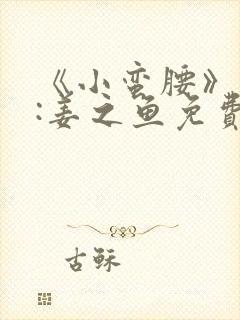 《小蛮腰》
:姜之鱼免费
古稣